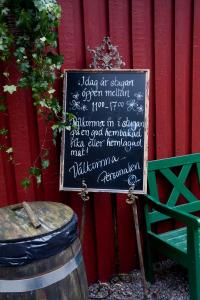 Idag är stugan
öppen mellan
11.00-17.00
Välkomna in i stugan
på en god hembakad
fika eller hemlagad
mat!
Välkomna
Personalen